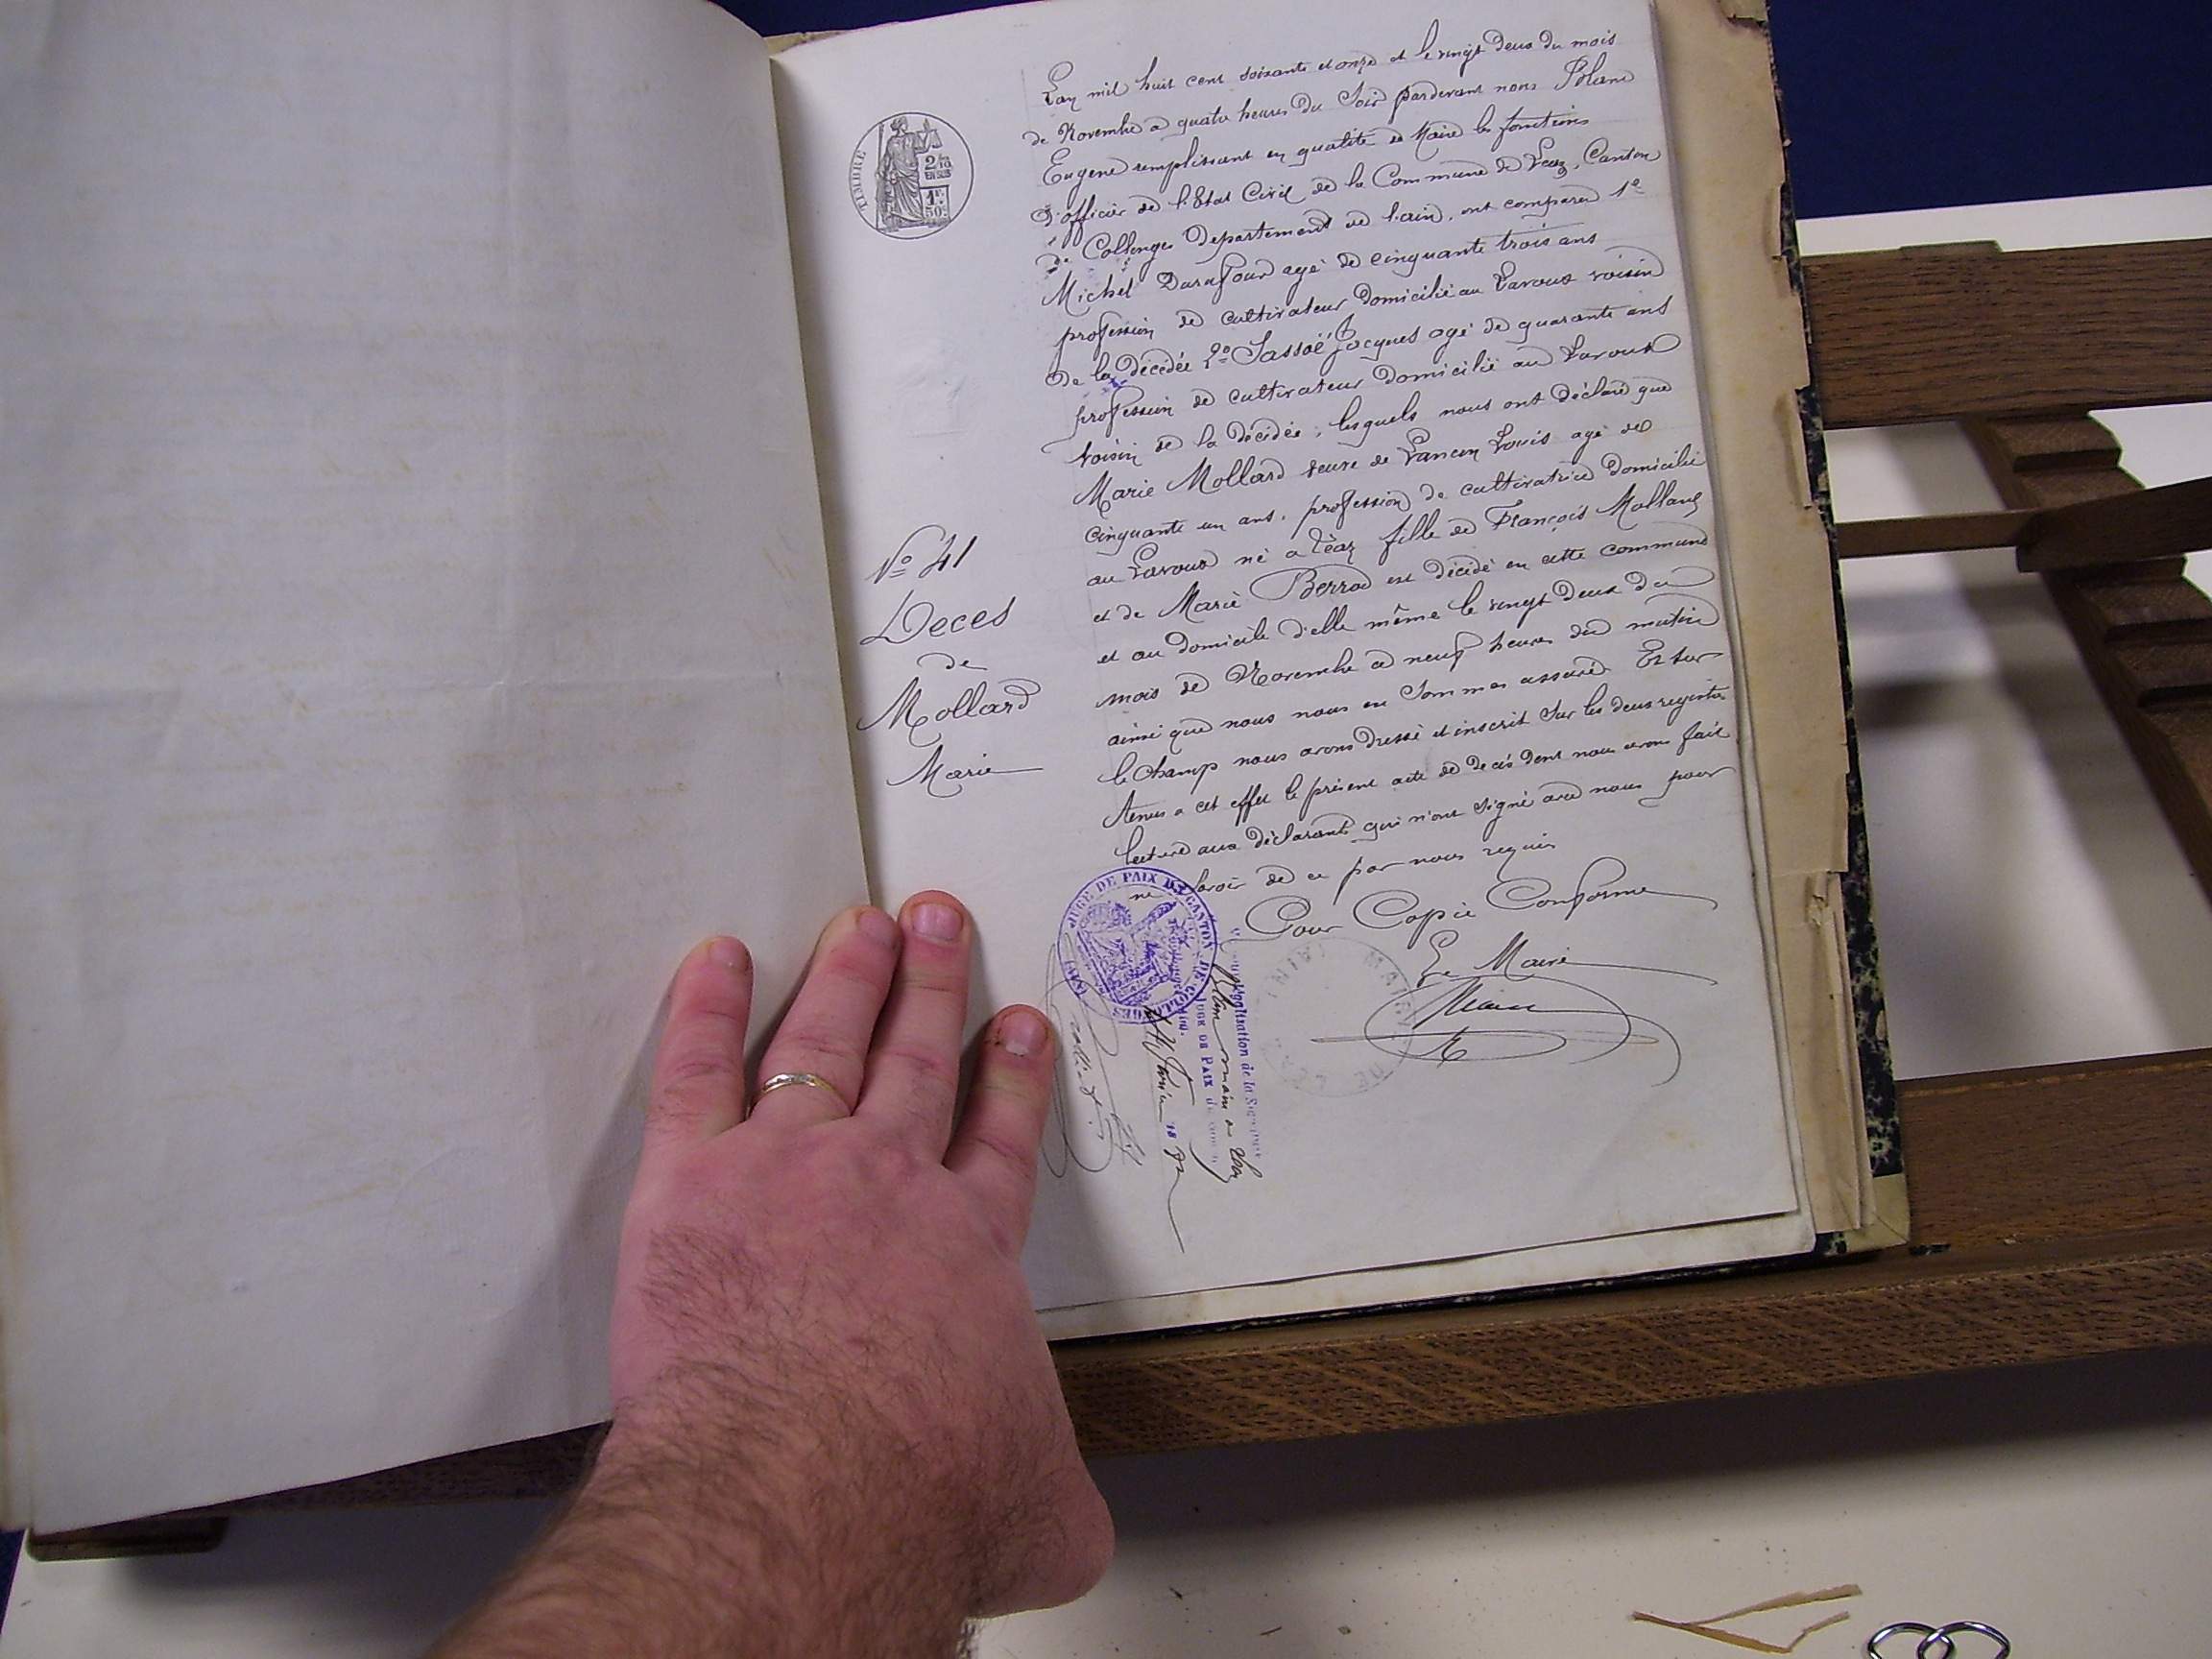 TIMBRE
2/10
EN SUS
1F.
50c.
L'an mil huit cent soixante et onze et le vingt deux du mois
de Novembre a quatre heures du Soir pardevant nous Blanc
Eugene remplissant en qualité de Maire les fonctions
d'officier de l'Etat Civil de la Commune de Léaz, Canton
de Collonges Departement de l'ain, ont comparu 1º
Michel Durafour agé de cinquante trois ans
profession de cultivateur domicilié au Lavoux voisin
de la décédée 2º Sassoé Jacques agé de quarante ans
profession de cultivateur domicilié au Lavoux
voisin de la décédée, lesquels nous ont déclaré que
Marie Mollard veuve de Lancon Louis agé de
cinquante un ans, profession de cultivatrice domicilié
au Lavoux né a Léaz fille de François Mollard
et de Marie Berrod est décédé en cette commune
et au domicile d'elle même le vingt deux du
mois de Novembre a neuf heures du matin
ainsi que nous nous en Sommes assuré. Et sur
le champ nous avons dressé et inscrit sur les deux registres
tenus a cet effet le présent acte de décès dont nous avons fait
lecture aux déclarants qui n'ont signé avec nous pour
ne savoir de ce par nous requis
Nº 41
Deces
de
Mollard
Marie
Pour Copie Conforme
Le Maire
JUGE DE PAIX DU CANTON DE COLLONGES (AIN)
MAIRIE DE
légalisation de la Signature
maire a Léaz
JUGE DE PAIX
Janvier 1872